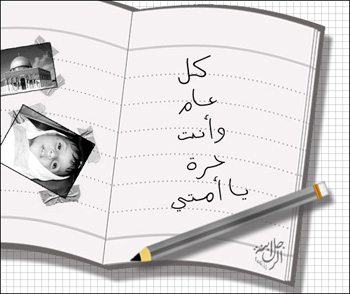 كل
عام
وأنت
حرة
يا أمتي